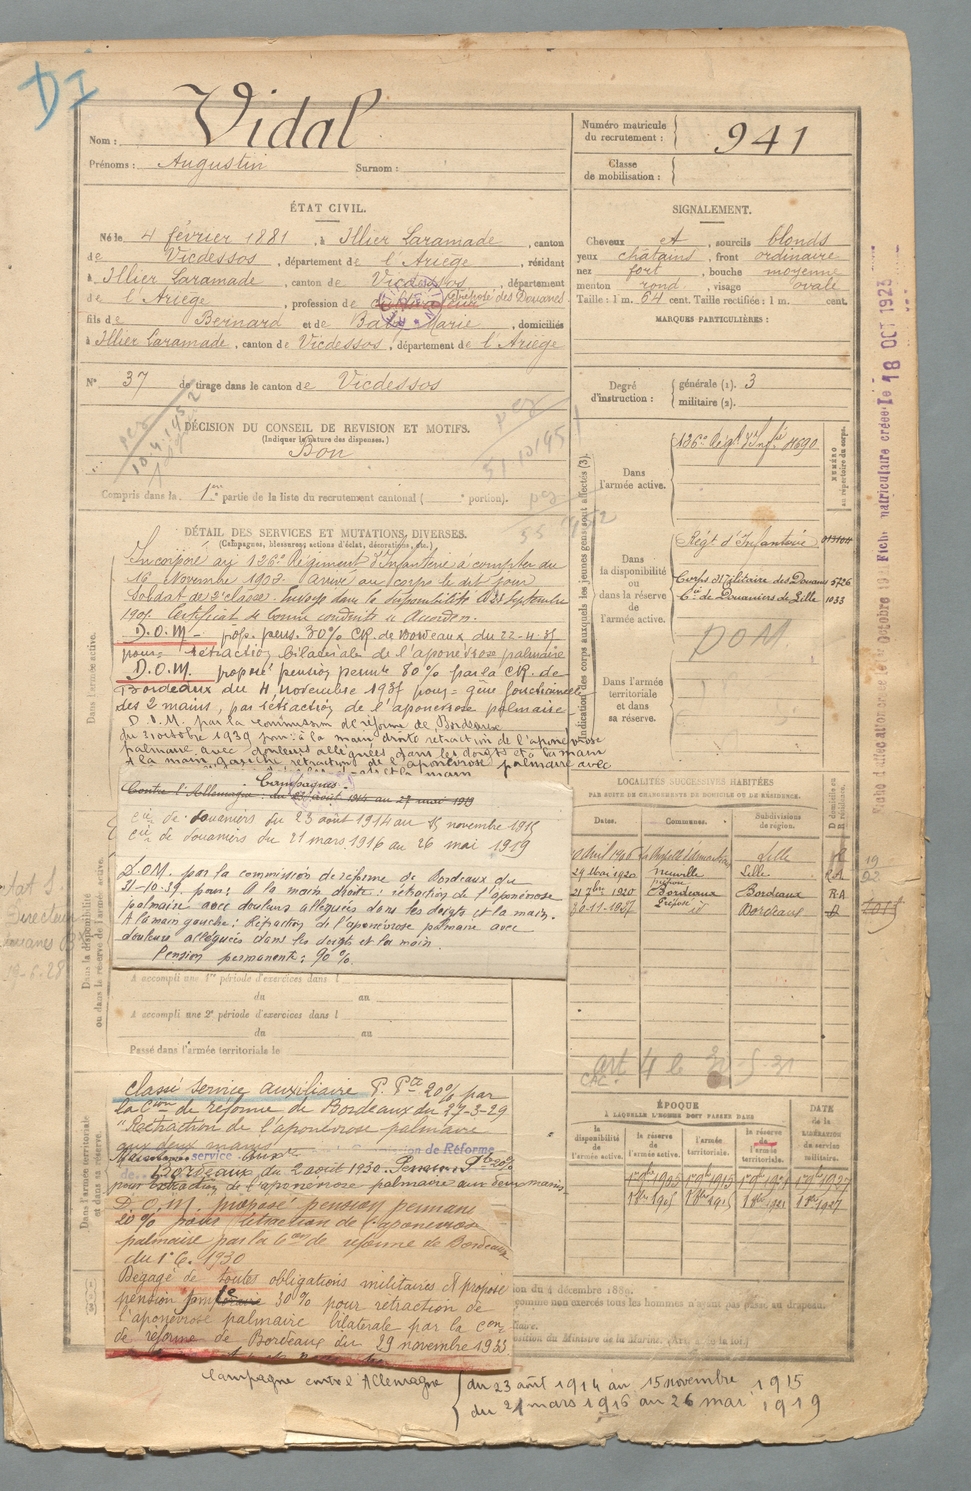 DI
Nom : Vidal
Prénoms : Augustin Surnom :
Numéro matricule du recrutement : 941
Classe de mobilisation :
ÉTAT CIVIL.
Né le 4 février 1881, à Illier Laramade, canton
de Vicdessos, département de l'Ariège, résidant
à Illier Laramade, canton de Vicdessos, département
de l'Ariège, profession de Préposé des Douanes
fils de Bernard et de Marie, domiciliés
à Illier Laramade, canton de Vicdessos, département de l'Ariège
N° 37 de tirage dans le canton de Vicdessos
SIGNALEMENT.
Cheveux et, sourcils blonds
yeux châtains, front ordinaire
nez fort, bouche moyenne
menton rond, visage ovale
Taille : 1 m. 64 cent. Taille rectifiée : 1 m. cent.
MARQUES PARTICULIÈRES :
Degré d'instruction : générale (1). 3
militaire (2).
DÉCISION DU CONSEIL DE REVISION ET MOTIFS.
(Indiquer la nature des dispenses.)
Bon
Compris dans la 1re partie de la liste du recrutement cantonal ( e portion).
DÉTAIL DES SERVICES ET MUTATIONS DIVERSES.
(Campagnes, blessures, actions d'éclat, décorations, etc.)
Incorporé au 126e Régiment d'Infanterie à compter du
16 Novembre 1902. Arrivé au corps le dit jour
Soldat de 2e classe. Envoyé dans la disponibilité le 23 Septembre
Certificat de bonne conduite Accordé.
D.O.M. prop. pens. 30% CR. de Bordeaux du 22-4-35
pour rétraction bilatérale de l'aponévrose palmaire
D.O.M. proposé pension permte 80% par la CR. de
Bordeaux du 4 novembre 1937 pour = gêne fonctionnelle
des 2 mains, par rétraction de l'aponévrose palmaire
D.O.M. par la commission de réforme de Bordeaux
du 31 octobre 1939 pour : à la main droite rétraction de l'aponévrose
palmaire avec douleurs alléguées dans les doigts et la main
A la main gauche rétraction de l'aponévrose palmaire avec
Campagnes.
Contre l'Allemagne : du 23 août 1914 au 27 mai 1919
Cie de douaniers du 23 août 1914 au 15 novembre 1915
Cie de douaniers du 21 mars 1916 au 26 mai 1919
D.O.M. par la commission de réforme de Bordeaux du
31-10-39 pour : A la main droite : rétraction de l'aponévrose
palmaire avec douleurs alléguées dans les doigts et la main.
A la main gauche : Rétraction de l'aponévrose palmaire avec
douleurs alléguées dans les doigts et la main.
Pension permanente : 90%.
A accompli une 1re période d'exercices dans l
du au
A accompli une 2e période d'exercices dans l
du au
Passé dans l'armée territoriale le
Classé Service auxiliaire P. Pte 20% par
la Cion de réforme de Bordeaux du 27-3-29
"Rétraction de l'aponévrose palmaire
aux deux mains"
Maintenu service aux. de Réforme
de Bordeaux du 2 août 1930. Pension 20%
pour rétraction de l'aponévrose palmaire aux deux mains
D.O.M. proposé pension permane
20% pour rétraction de l'aponévrose
palmaire par la Con de réforme de Bordeaux
du 1-6-1930
Dégagé de toutes obligations militaires & proposé
pension 30% pour rétraction de
l'aponévrose palmaire bilatérale par la Con
de réforme de Bordeaux du 29 novembre 1933
Campagne contre l'Allemagne
du 23 août 1914 au 15 novembre 1915
du 21 mars 1916 au 26 mai 1919
Indication des corps auxquels les jeunes gens sont affectés (3).
Dans l'armée active.
126e Régt d'Infie 4690
NUMÉRO au répertoire du corps.
Dans la disponibilité ou dans la réserve de l'armée active.
Régt d'Infanterie
Corps Militaire des Douanes 5726
Cie de Douaniers de Lille 1033
DOM
Dans l'armée territoriale et dans sa réserve.
LOCALITÉS SUCCESSIVES HABITÉES
PAR SUITE DE CHANGEMENTS DE DOMICILE OU DE RÉSIDENCE.
Dates. Communes. Subdivisions de région. D domicile ou R résidence.
Lille
29 Mai 1920 Neuville Lille R.A
21 7bre 1920 Bordeaux Bordeaux R.A
30-11-1937 id Bordeaux
art 4
ÉPOQUE
À LAQUELLE L'HOMME DOIT PASSER DANS
la disponibilité de l'armée active. la réserve de l'armée active. l'armée territoriale. la réserve de l'armée territoriale.
DATE de la LIBÉRATION du service militaire.
Dans l'armée active.
Dans la disponibilité ou dans la réserve de l'armée active.
Dans l'armée territoriale et dans sa réserve.
18 OCT 1923